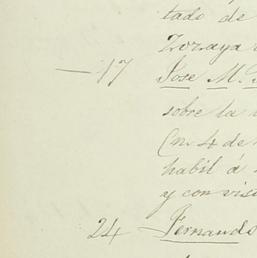 tado de
Zozaya
— 17 Jose M.
sobre la
(n. 4 de
habil á
y con visi
24 Fernando